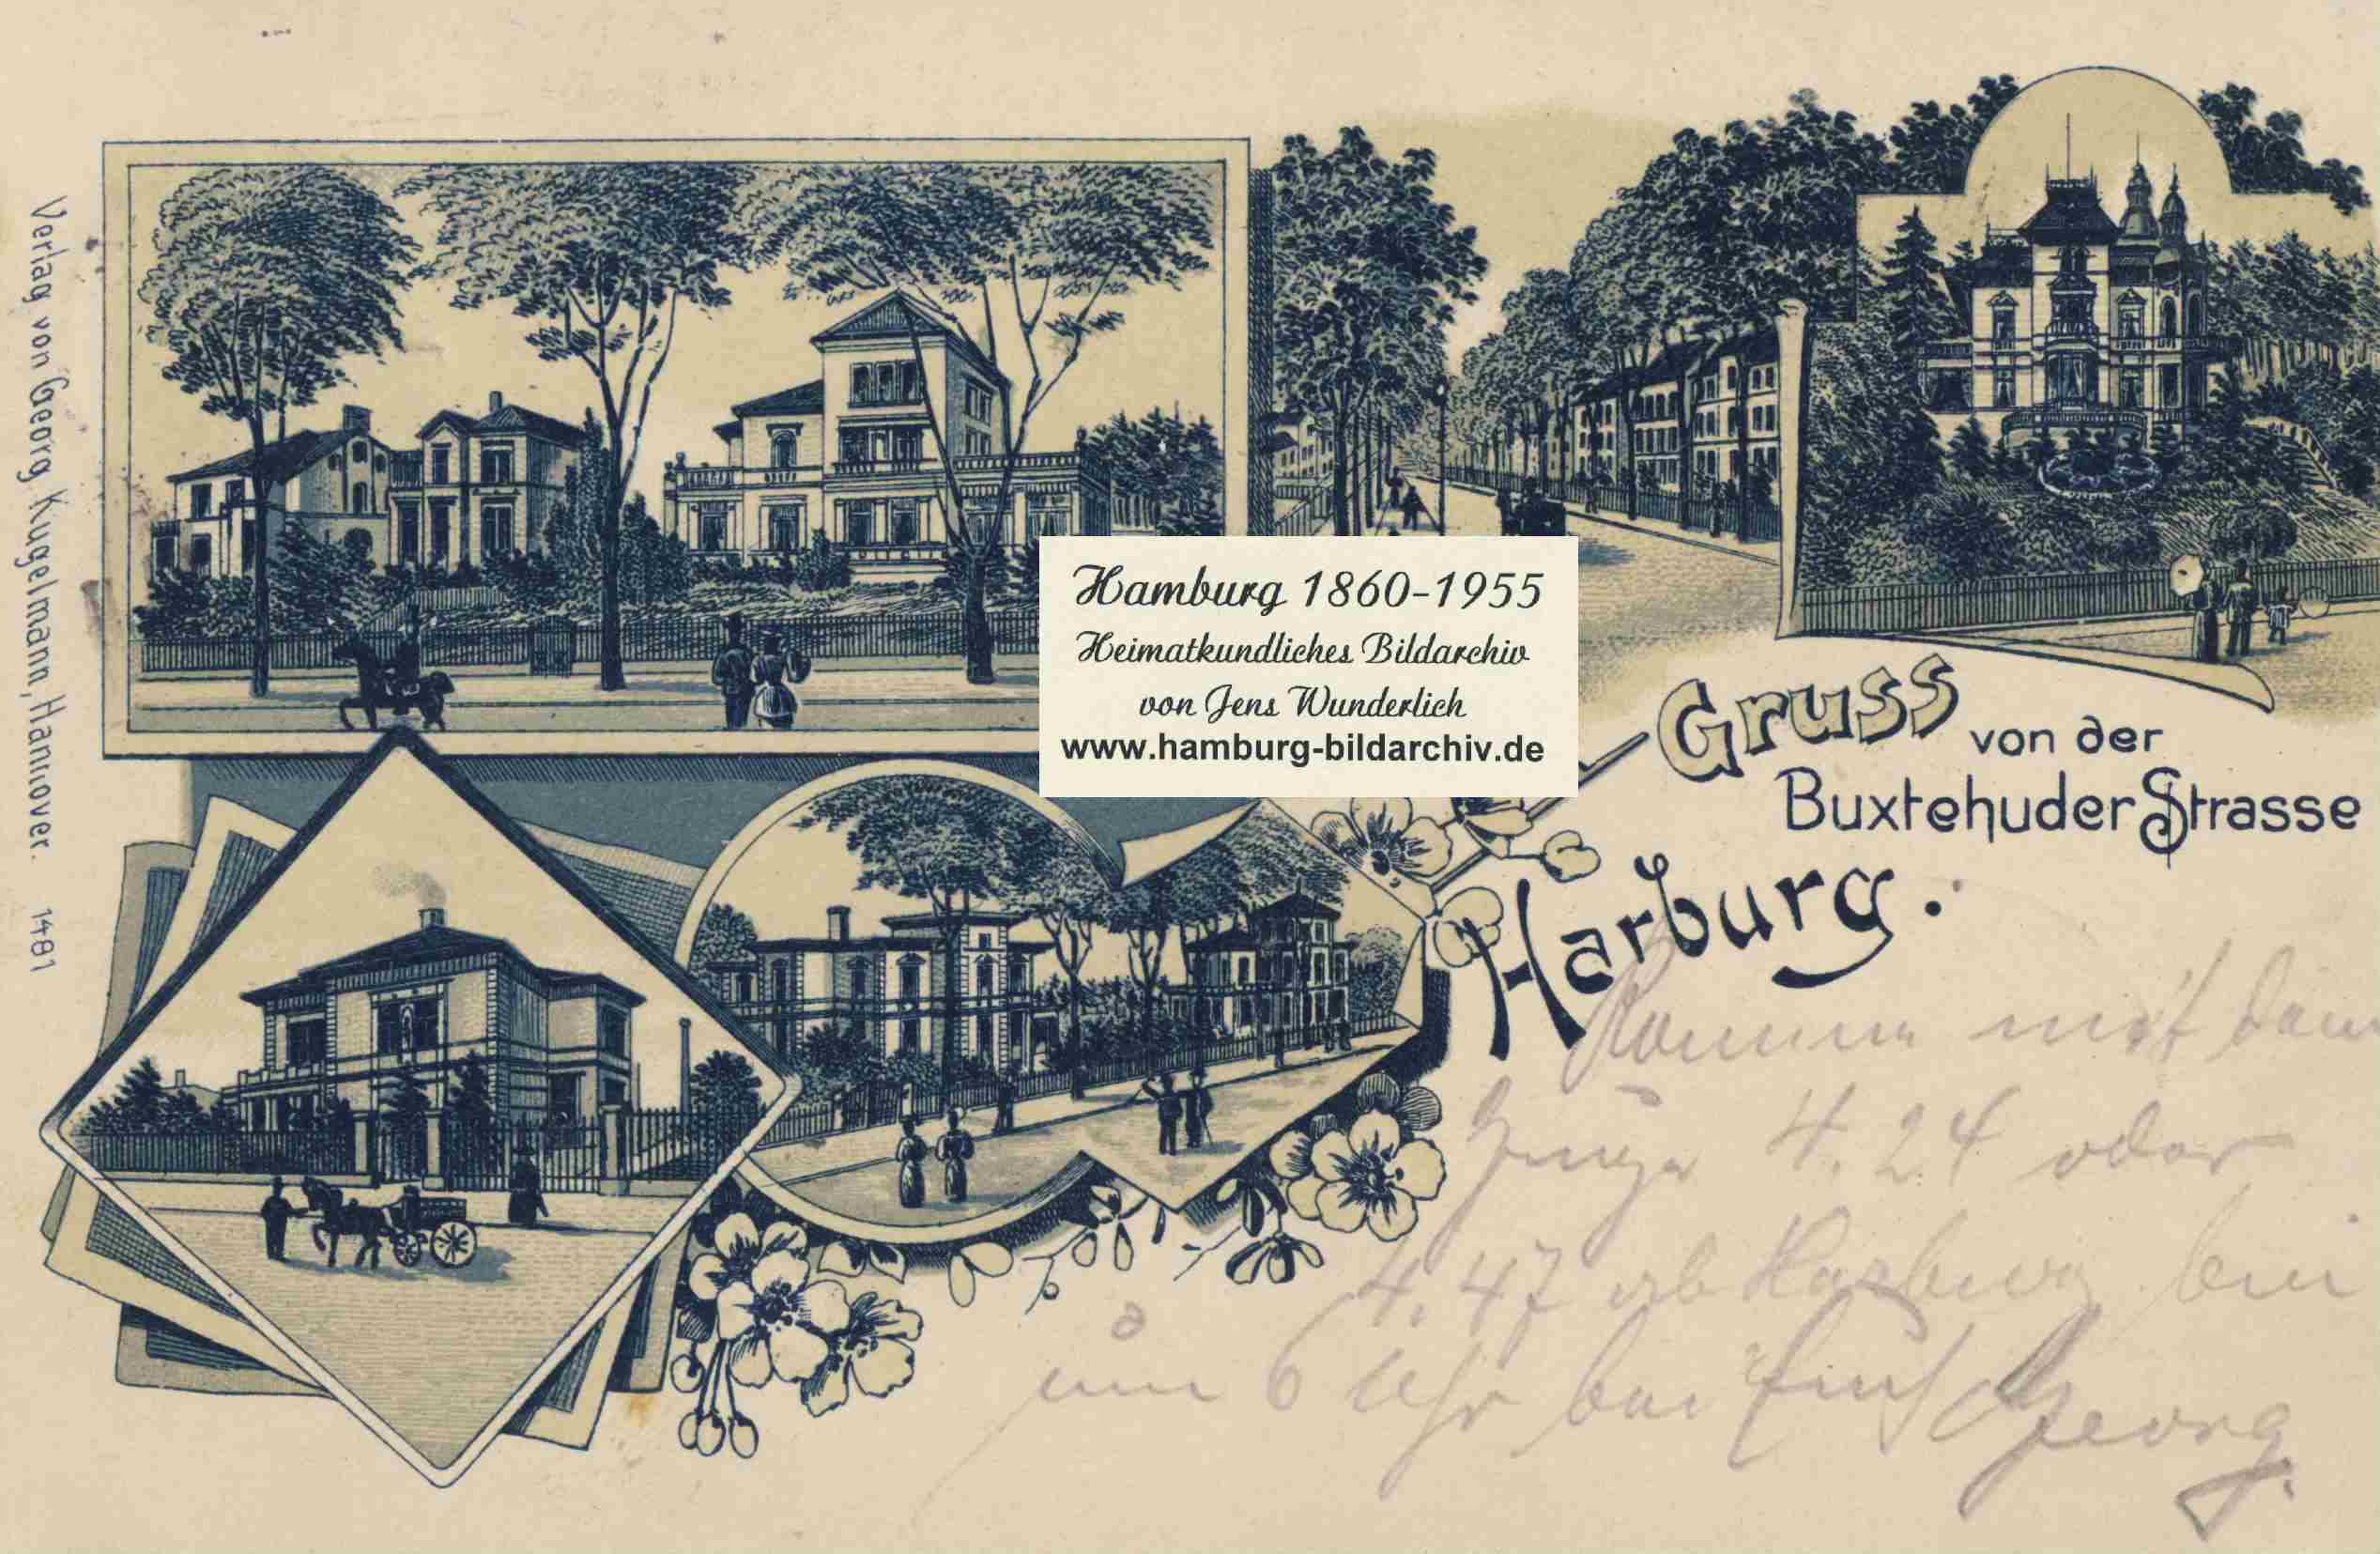 Verlag von Georg Kugelmann, Hannover. 1481
Hamburg 1860-1955
Heimatkundliches Bildarchiv
von Jens Wunderlich
www.hamburg-bildarchiv.de
Gruss von der
Buxtehuder Strasse
Harburg.
Komme mit dem
Zuge 4.24 oder
4.47 ab Harburg bin
um 6 Uhr bei Georg.